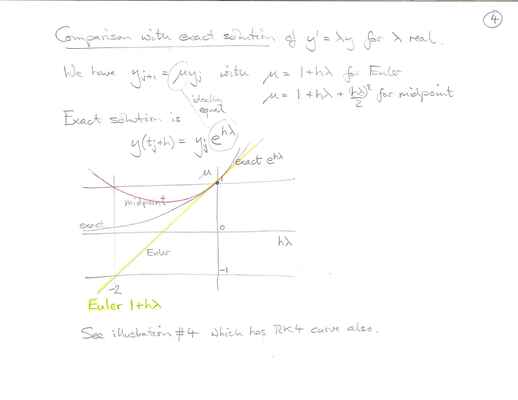 4
Comparison with exact solution of y' = λy for λ real.
We have y_{j+1} = μy_j with μ = 1+hλ for Euler
μ = 1 + hλ + (hλ)²/2 for midpoint
ideally
equal
Exact solution is
y(t_j+h) = y_j e^{hλ}
μ
exact e^{hλ}
1
midpoint
exact
0
hλ
Euler
-1
-2
Euler 1+hλ
See illustration #4 which has RK4 curve also.